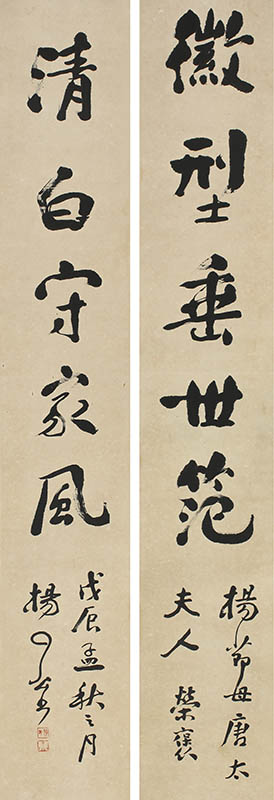 徽型垂世范
楊節母唐太
夫人榮褒
清白守家風
戊辰孟秋之月
楊